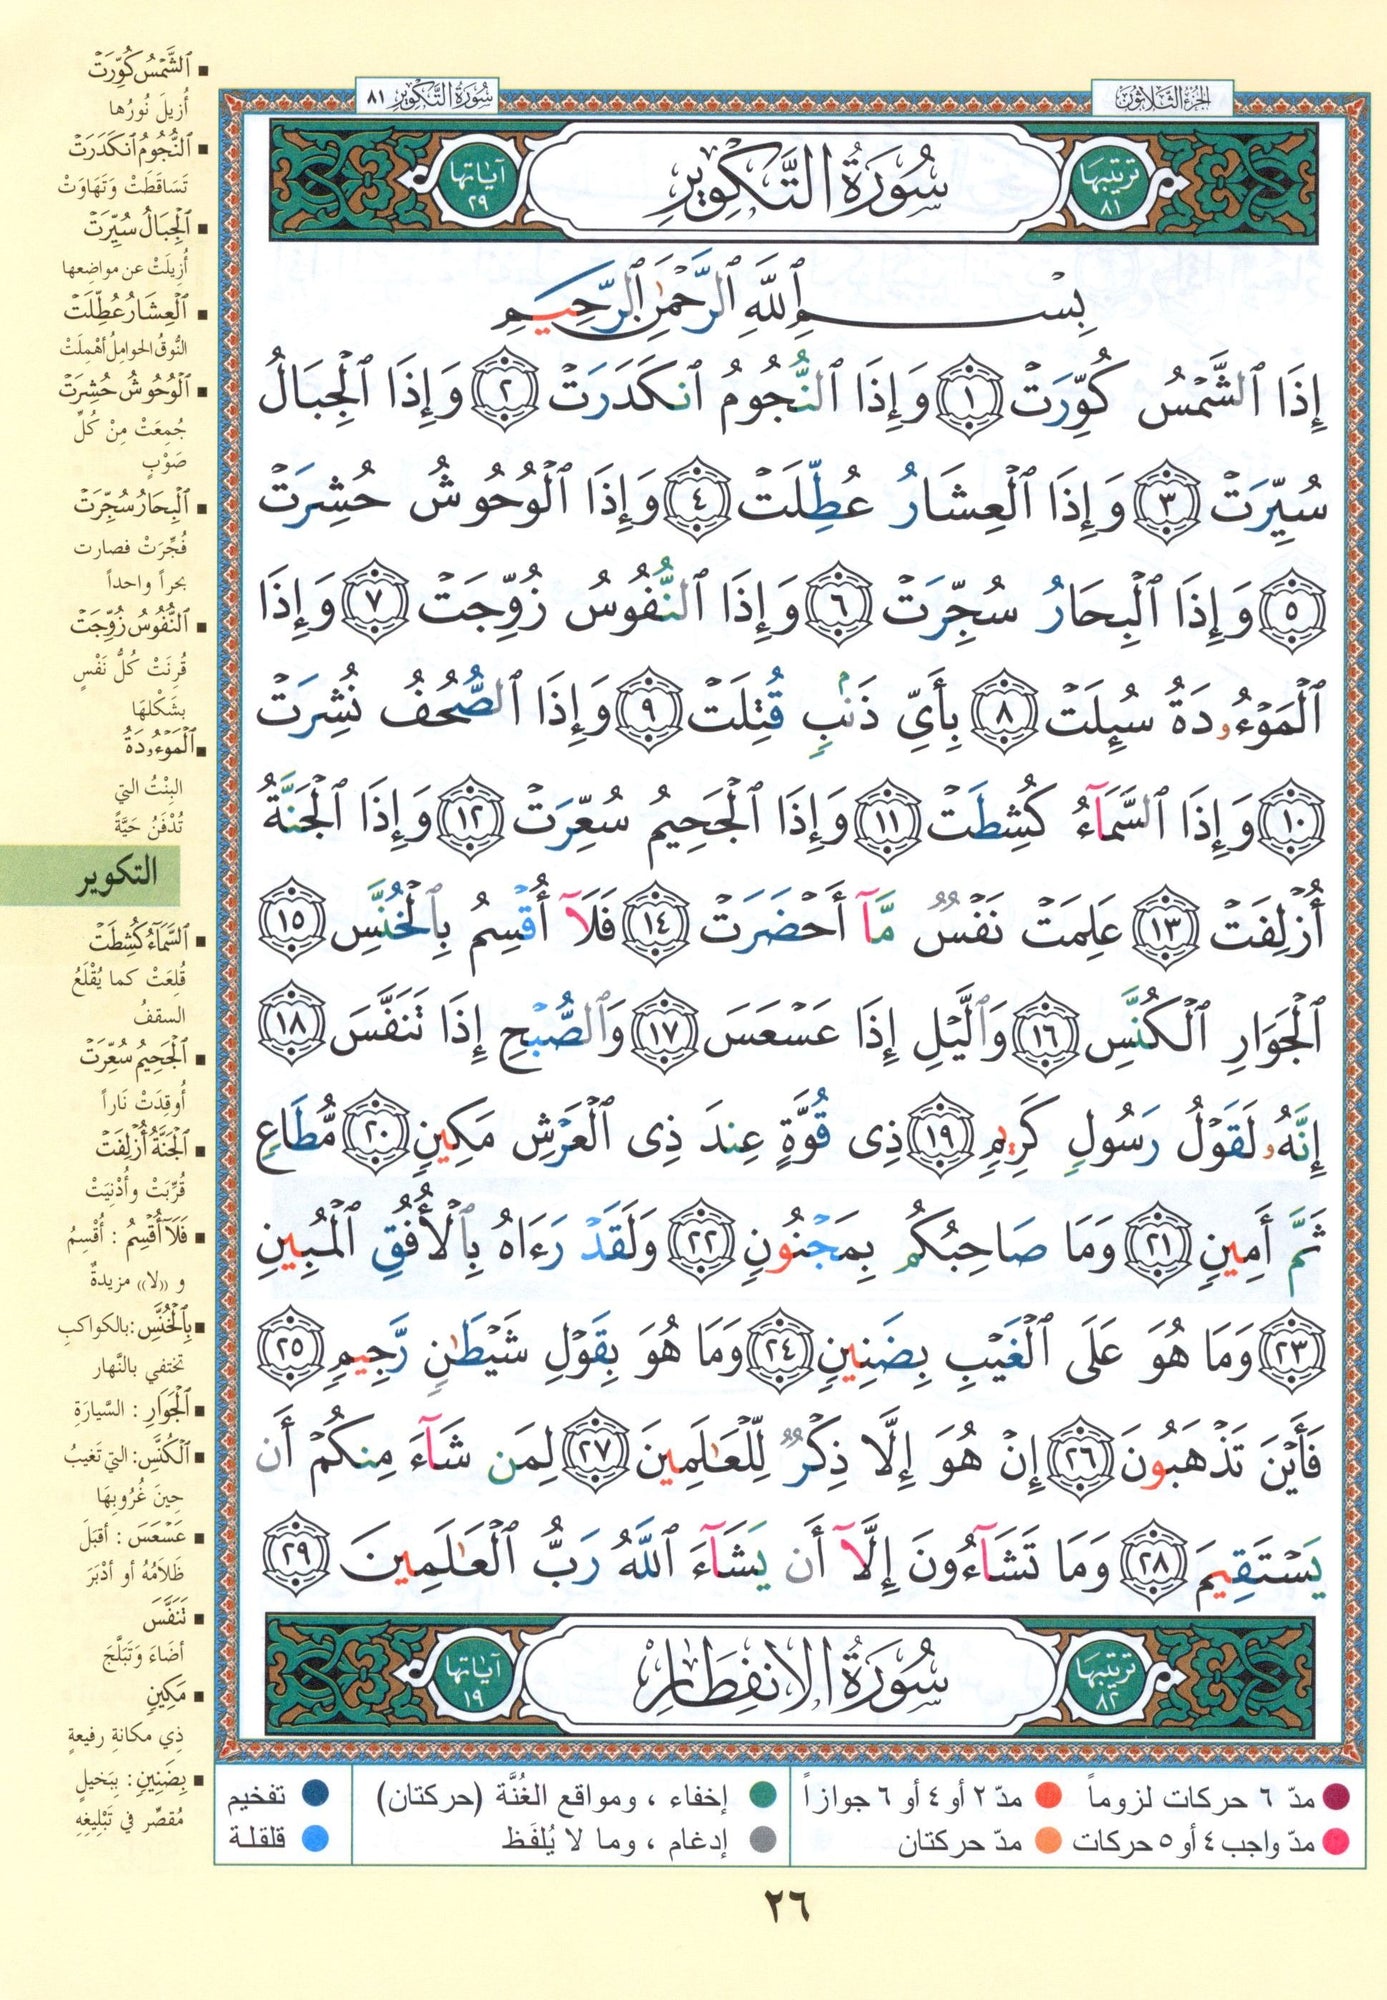 الجزء الثلاثون
سورة التكوير ٨١
ترتيبها ٨١
سُورَةُ التَّكْوِيرِ
آياتها ٢٩
بِسْمِ ٱللَّهِ ٱلرَّحْمَٰنِ ٱلرَّحِيمِ
إِذَا ٱلشَّمْسُ كُوِّرَتْ ١ وَإِذَا ٱلنُّجُومُ ٱنكَدَرَتْ ٢ وَإِذَا ٱلْجِبَالُ
سُيِّرَتْ ٣ وَإِذَا ٱلْعِشَارُ عُطِّلَتْ ٤ وَإِذَا ٱلْوُحُوشُ حُشِرَتْ
٥ وَإِذَا ٱلْبِحَارُ سُجِّرَتْ ٦ وَإِذَا ٱلنُّفُوسُ زُوِّجَتْ ٧ وَإِذَا
ٱلْمَوْءُۥدَةُ سُئِلَتْ ٨ بِأَىِّ ذَنۢبٍ قُتِلَتْ ٩ وَإِذَا ٱلصُّحُفُ نُشِرَتْ
١٠ وَإِذَا ٱلسَّمَآءُ كُشِطَتْ ١١ وَإِذَا ٱلْجَحِيمُ سُعِّرَتْ ١٢ وَإِذَا ٱلْجَنَّةُ
أُزْلِفَتْ ١٣ عَلِمَتْ نَفْسٌ مَّآ أَحْضَرَتْ ١٤ فَلَآ أُقْسِمُ بِٱلْخُنَّسِ ١٥
ٱلْجَوَارِ ٱلْكُنَّسِ ١٦ وَٱلَّيْلِ إِذَا عَسْعَسَ ١٧ وَٱلصُّبْحِ إِذَا تَنَفَّسَ ١٨
إِنَّهُۥ لَقَوْلُ رَسُولٍ كَرِيمٍ ١٩ ذِى قُوَّةٍ عِندَ ذِى ٱلْعَرْشِ مَكِينٍ ٢٠ مُّطَاعٍ
ثَمَّ أَمِينٍ ٢١ وَمَا صَاحِبُكُم بِمَجْنُونٍ ٢٢ وَلَقَدْ رَءَاهُ بِٱلْأُفُقِ ٱلْمُبِينِ
٢٣ وَمَا هُوَ عَلَى ٱلْغَيْبِ بِضَنِينٍ ٢٤ وَمَا هُوَ بِقَوْلِ شَيْطَٰنٍ رَّجِيمٍ ٢٥
فَأَيْنَ تَذْهَبُونَ ٢٦ إِنْ هُوَ إِلَّا ذِكْرٌ لِّلْعَٰلَمِينَ ٢٧ لِمَن شَآءَ مِنكُمْ أَن
يَسْتَقِيمَ ٢٨ وَمَا تَشَآءُونَ إِلَّآ أَن يَشَآءَ ٱللَّهُ رَبُّ ٱلْعَٰلَمِينَ ٢٩
ترتيبها ٨٢
سُورَةُ الانفِطَارِ
آياتها ١٩
ٱلشَّمْسُ كُوِّرَتْ
أُزيلَ نُورُها
ٱلنُّجُومُ ٱنكَدَرَتْ
تَسَاقَطَتْ وَتَهَاوَتْ
ٱلْجِبَالُ سُيِّرَتْ
أُزِيلَتْ عن مواضِعها
ٱلْعِشَارُ عُطِّلَتْ
النُّوقُ الحوامِلُ أُهْمِلَتْ
ٱلْوُحُوشُ حُشِرَتْ
جُمِعَتْ مِنْ كُلِّ
صَوْبٍ
ٱلْبِحَارُ سُجِّرَتْ
فُجِّرَتْ فصارت
بحراً واحداً
ٱلنُّفُوسُ زُوِّجَتْ
قُرِنَتْ كُلُّ نَفْسٍ
بشَكْلِهَا
ٱلْمَوْءُۥدَةُ
البِنْتُ التي
تُدْفَنُ حَيَّةً
التكوير
ٱلسَّمَآءُ كُشِطَتْ
قُلِعَتْ كما يُقْلَعُ
السقفُ
ٱلْجَحِيمُ سُعِّرَتْ
أُوقِدَتْ نَاراً
ٱلْجَنَّةُ أُزْلِفَتْ
قُرِّبَتْ وأُدْنِيَتْ
فَلَآ أُقْسِمُ : أُقْسِمُ
و «لا» مزيدةٌ
بِٱلْخُنَّسِ : بالكواكبِ
تختفي بالنَّهار
ٱلْجَوَارِ : السَّيارَةِ
ٱلْكُنَّسِ : التي تَغيبُ
حِينَ غُرُوبِهَا
عَسْعَسَ : أقبَلَ
ظَلَامُهُ أو أدْبَرَ
تَنَفَّسَ
أضَاءَ وَتَبَلَّجَ
مَكِينٍ
ذِي مكانةٍ رفيعةٍ
بِضَنِينٍ : بِبَخيلٍ
مُقصِّر في تَبْلِيغِهِ
مدّ ٦ حركات لزوماً
مدّ ٢ أو ٤ أو ٦ جوازاً
إخفاء ، ومواقع الغُنَّة (حركتان)
تفخيم
مدّ واجب ٤ أو ٥ حركات
مدّ حركتان
إدغام ، وما لا يُلفَظ
قلقلة
٢٦